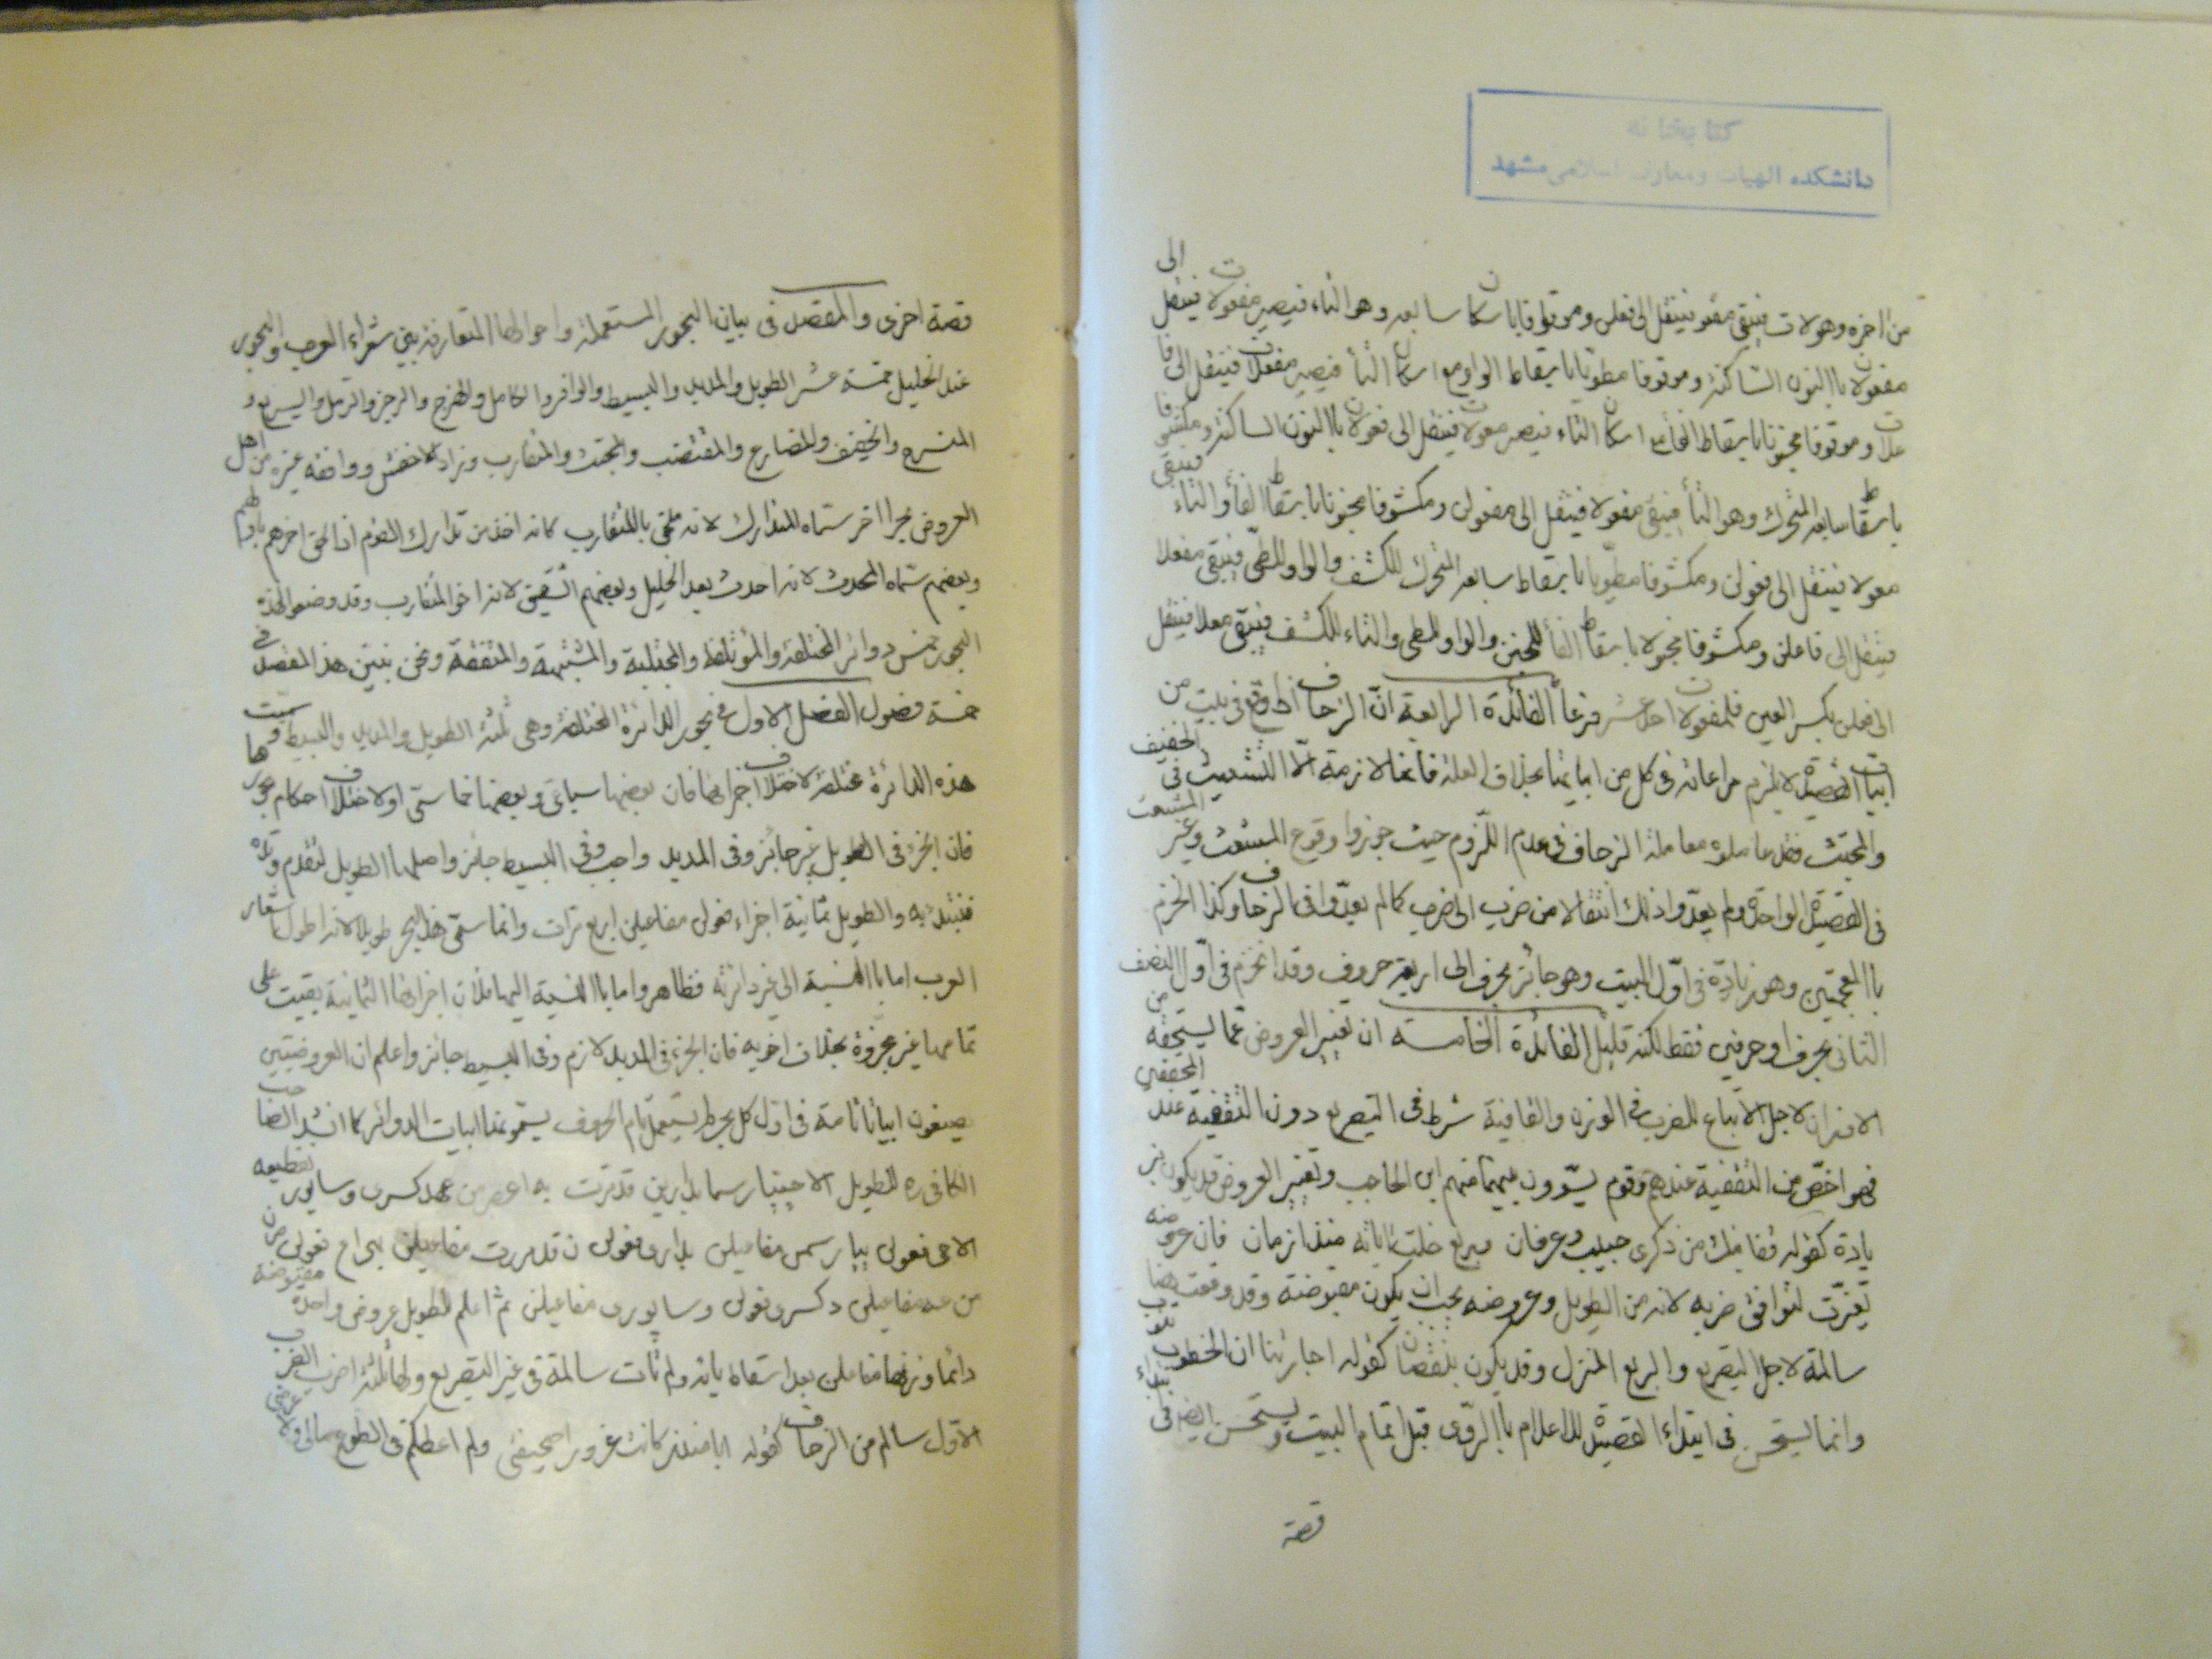 كتابخانه
دانشكده الهيات و معارف اسلامى مشهد
من اخره وهو لات فيبقى مفعو فينقل الى فعلن وموقوفا باسكان سابعه وهو التاء فيصير مفعولات فينقل الى
مفعولان باالنون الساكنة وموقوفا مطويا باسقاط الواو مع اسكان التاء فيصير مفعلات فينقل الى فا
علات وموقوفا مخبونا باسقاط الفاء مع اسكان التاء فيصير معولات فينقل الى فعولان باالنون الساكنة ومكشوفا
باسقاط سابعه المتحرك وهو التاء فيبقى مفعولا فينقل الى مفعولن ومكشوفا مخبونا باسقاط الفاء والتاء فيبقى
معولا فينقل الى فعولن ومكشوفا مطويا باسقاط سابعه المتحرك للكشف والواو للطى فيبقى مفعلا
فينقل الى فاعلن ومكشوفا مخبولا باسقاط الفاء للخبن والواو للطى والتاء للكشف فيبقى معلا فينقل
الى فعلن بكسر العين فلمفعولات احد عشر فرعا الفائدة الرابعة ان الزحاف اذا وقع فى بيت من
ابيات القصيدة لا يلزم مراعاته فى كل من ابياتها بخلاف العلة فانها لازمة الّا التشعيث فى الخفيف
والمجتث فقد عاملوه معاملة الزحاف فى عدم اللزوم حيث جوزوا وقوع المشعث وغير المشعث
فى القصيدة الواحدة ولم يعدّوا ذلك انتقالا من ضرب الى ضرب كما لم يعدّوا فى الزحاف وكذا الخزم
باالمعجمتين وهو زيادة فى اوّل البيت وهو جائز بحرف الى اربعة حروف وقد الخزم فى اوّل النصف
الثانى بحرف او حرفين فقط لكنه قليل الفائدة الخامسة ان تغيير العروض عمّا يستحقه من
الاوزان لاجل الاتباع للضرب فى الوزن والقافية شرط فى التصريع دون التقفية عند المحققين
فهو اخصّ من التقفية عندهم وقوم يسوّون بينهما منهم ابن الحاجب وتغيير العروض قد يكون بز
يادة كقوله قفا نبك من ذكرى حبيب وعرفان وربع خلت اياته منذ ازمان فان عروضه
تغيّرت لتوافق ضربه لانه من الطويل وعروضه يجب ان يكون مقبوضة وقد وقعت هنا
سالمة لاجل التصريع والربع المنزل وقد يكون بنقصان كقوله اجارتنا ان الخطوب تنوب
وانما يستحسن فى ابتداء القصيدة للاعلام باالروّى قبل تمام البيت ويستحسن ايضا فى ابتداء
قصة
قصة اخرى والمقصد فى بيان البحور المستعملة واحوالها المتعارفة بين شعراء العرب والبحور
عند الخليل خمسة عشر الطويل والمديد والبسيط والوافر والكامل والهزج والرجز والرمل والسريع و
المنسرح والخفيف والمضارع والمقتضب والمجتث والمتقارب وزاد الاخفش ووافقه غيره من اهل
العروض بحرا اخر سماه المتدارك لانه ملحق باالمتقارب كانه اخذ من تدارك القوم اذا لحق اخرهم باولهم
وبعضهم سماه المحدث لانه احدث بعد الخليل وبعضهم الشقيق لانه اخو المتقارب وقد وضعوا لهذه
البحور خمس دوائر المختلفة والمؤتلفة والمجتلبة والمشتبهة والمتفقة ونحن نبيّن هذا المقصد فى
خمسة فصول الفصل الاول فى بحور الدائرة المختلفة وهى ثلثة الطويل والمديد والبسيط وسميت
هذه الدائرة مختلفة لاختلاف اجزائها فان بعضها سباعى وبعضها خماسى او لاختلاف احكام بحورها
فان الجزء فى الطويل غير جائز وفى المديد واجب وفى البسيط جائز واصلها الطويل لتقدم وتده
فنبتدئ به والطويل ثمانية اجزاء فعولن مفاعيلن اربع مرّات وانما سمّى هذا البحر طويلا لانه اطول اشعار
العرب اما باالنسبة الى غير دائرته فظاهر واما باالنسبة اليها فلان اجزائها الثمانية بقيت على
تمامها غير مجزوة بخلاف اخويه فان الجزء فى المديد لازم وفى البسيط جائز واعلم ان العروضيين
يصيغون ابياتا تامة فى اول كل بحر لم يستعمل تام الحروف يسمونها ابيات الدوائر كما انشد الصاحب
الكافى ره للطويل الا حيّيا رسما بدارين قد مرّت به اعصر من عهد كسرى وسابور تقطيعه
الا حى فعولن يبا رسمن مفاعيلن بدارى فعولن ن قد مررت مفاعيلن بهى اع فعولن صرن
من عه مفاعيلن د كسرى فعولن وسابورى مفاعيلن ثم اعلم للطويل عروض واحدة مقبوضة
دائما وزنها مفاعلن بعد اسقاط يائه ولم تأت سالمة فى غير التصريع ولها ثلثة اضرب الضرب
الاوّل سالم من الزحاف كقوله ابا منذر كانت غرورا صحيفتى ولم اعطكم فى الطوع مالى ولا عرضى